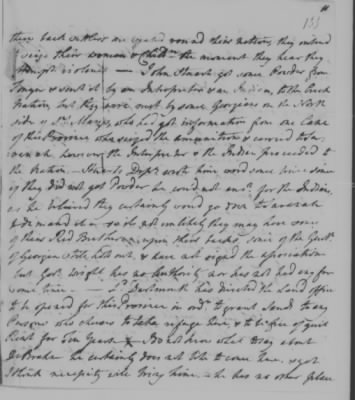 11
151
these back settlers are spread round their nation, they intend
to seize their women & Child.n the moment they hear they
attempt violence — John Stuart got some Powder from
Tonyn & sent it by an Interpreter & an Indian, to the Creek
Nation, but they were met by some Georgians on the North
side of St. Marys, who had got information from one Cane
of this Province who seized the ammunition & carried to Sa-
vanah however, the Interpreter & the Indian proceeded to
the Nation — Stuarts Dep.y wrote him word some time since
if they did not get Powder he could not ans.r for the Indians
as he believed they certainly would go over to Savanah
& demand it — so its not unlikely they may have some
of their Red Brethren upon their backs, some of the Gent.n
of Georgia still hold out, & have not signed the association
but Gov.r Wright has no Authority nor has not had any for
some time — L.d Dartmouth has directed the Land office
to be opened for this Province in ord.r to grant Lands to any
Persons who chuses to take refuge here, & to be free of quit
Rent for Ten Years — I do not know what to say about
De Brahm he certainly does not like to come here, & yet
I think necessity will bring him — he has no other place